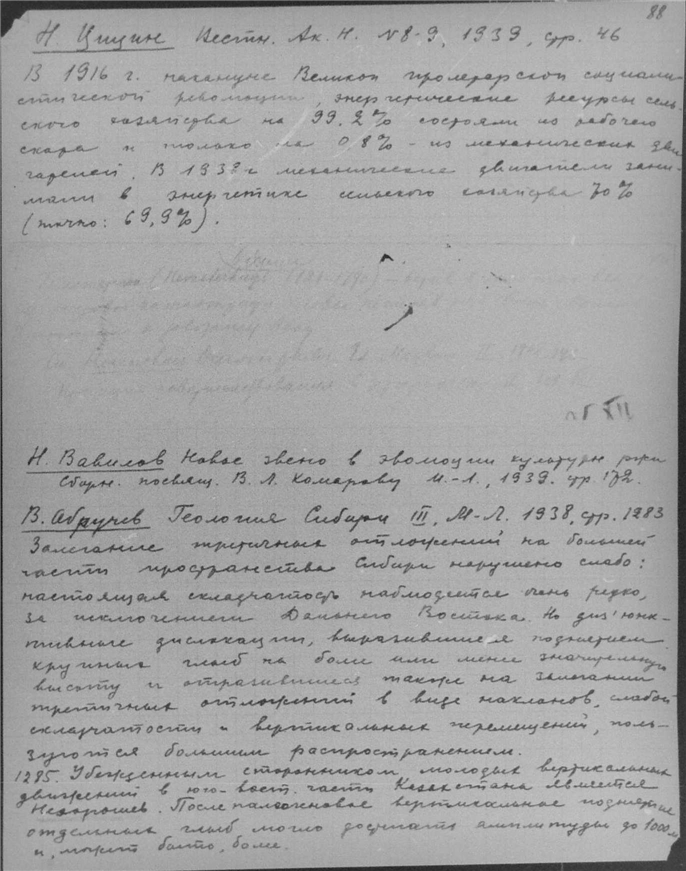 88
Н. Цицин Вестн. Ак. Н. N 8-9, 1939, стр. 46
В 1916 г. накануне Великой пролетарской социали-
стической революции, энергетические ресурсы сель-
ского хозяйства на 99,2% состояли из рабочего
скота и только на 0,8% - из механических дви-
гателей. В 1938 г механические двигатели зани-
мали в энергетике сельского хозяйства 70%
(точно: 69,9%).
XII
Н. Вавилов Новое звено в эволюции культурн. ржи
Сборн. посвящ. В. Л. Комарову М.-Л., 1939. стр. 72.
В. Обручев Геология Сибири III, М-Л. 1938, стр. 1283
Залегание третичных отложений на большей
части пространства Сибири нарушено слабо:
настоящая складчатость наблюдается очень редко,
за исключением Дальнего Востока. Но диз'юнк-
тивные дислокации, выразившиеся поднятием
крупных глыб на более или менее значительную
высоту и отразившиеся также на залегании
третичных отложений в виде наклонов, слабой
складчатости и вертикальных перемещений, поль-
зуются большим распространением.
1285. Убежденным сторонником молодых вертикальных
движений в юго-вост. части Казахстана является
Нехорошев. Послепалеогеновое вертикальное поднятие
отдельных глыб могло достигать амплитуды до 1000 м
и, может быть, более.